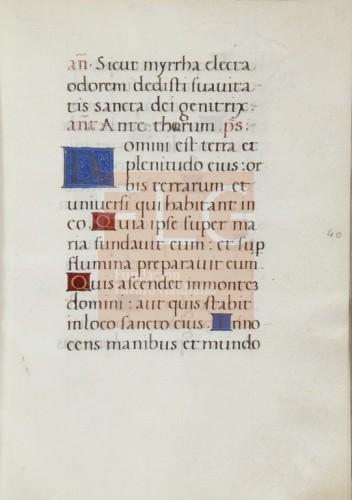 añ. Sicut myrrha electa
odorem dedisti suavita
tis sancta dei genitrix.
añt. Ante thorum. ps.
Domini est terra et
plenitudo eius: or
bis terrarum et
universi qui habitant in
eo. Quia ipse super ma
ria fundavit eum: et sup
flumina preparavit eum.
Quis ascendet in montez
domini: aut quis stabit
in loco sancto eius. Inno
cens manibus et mundo
40